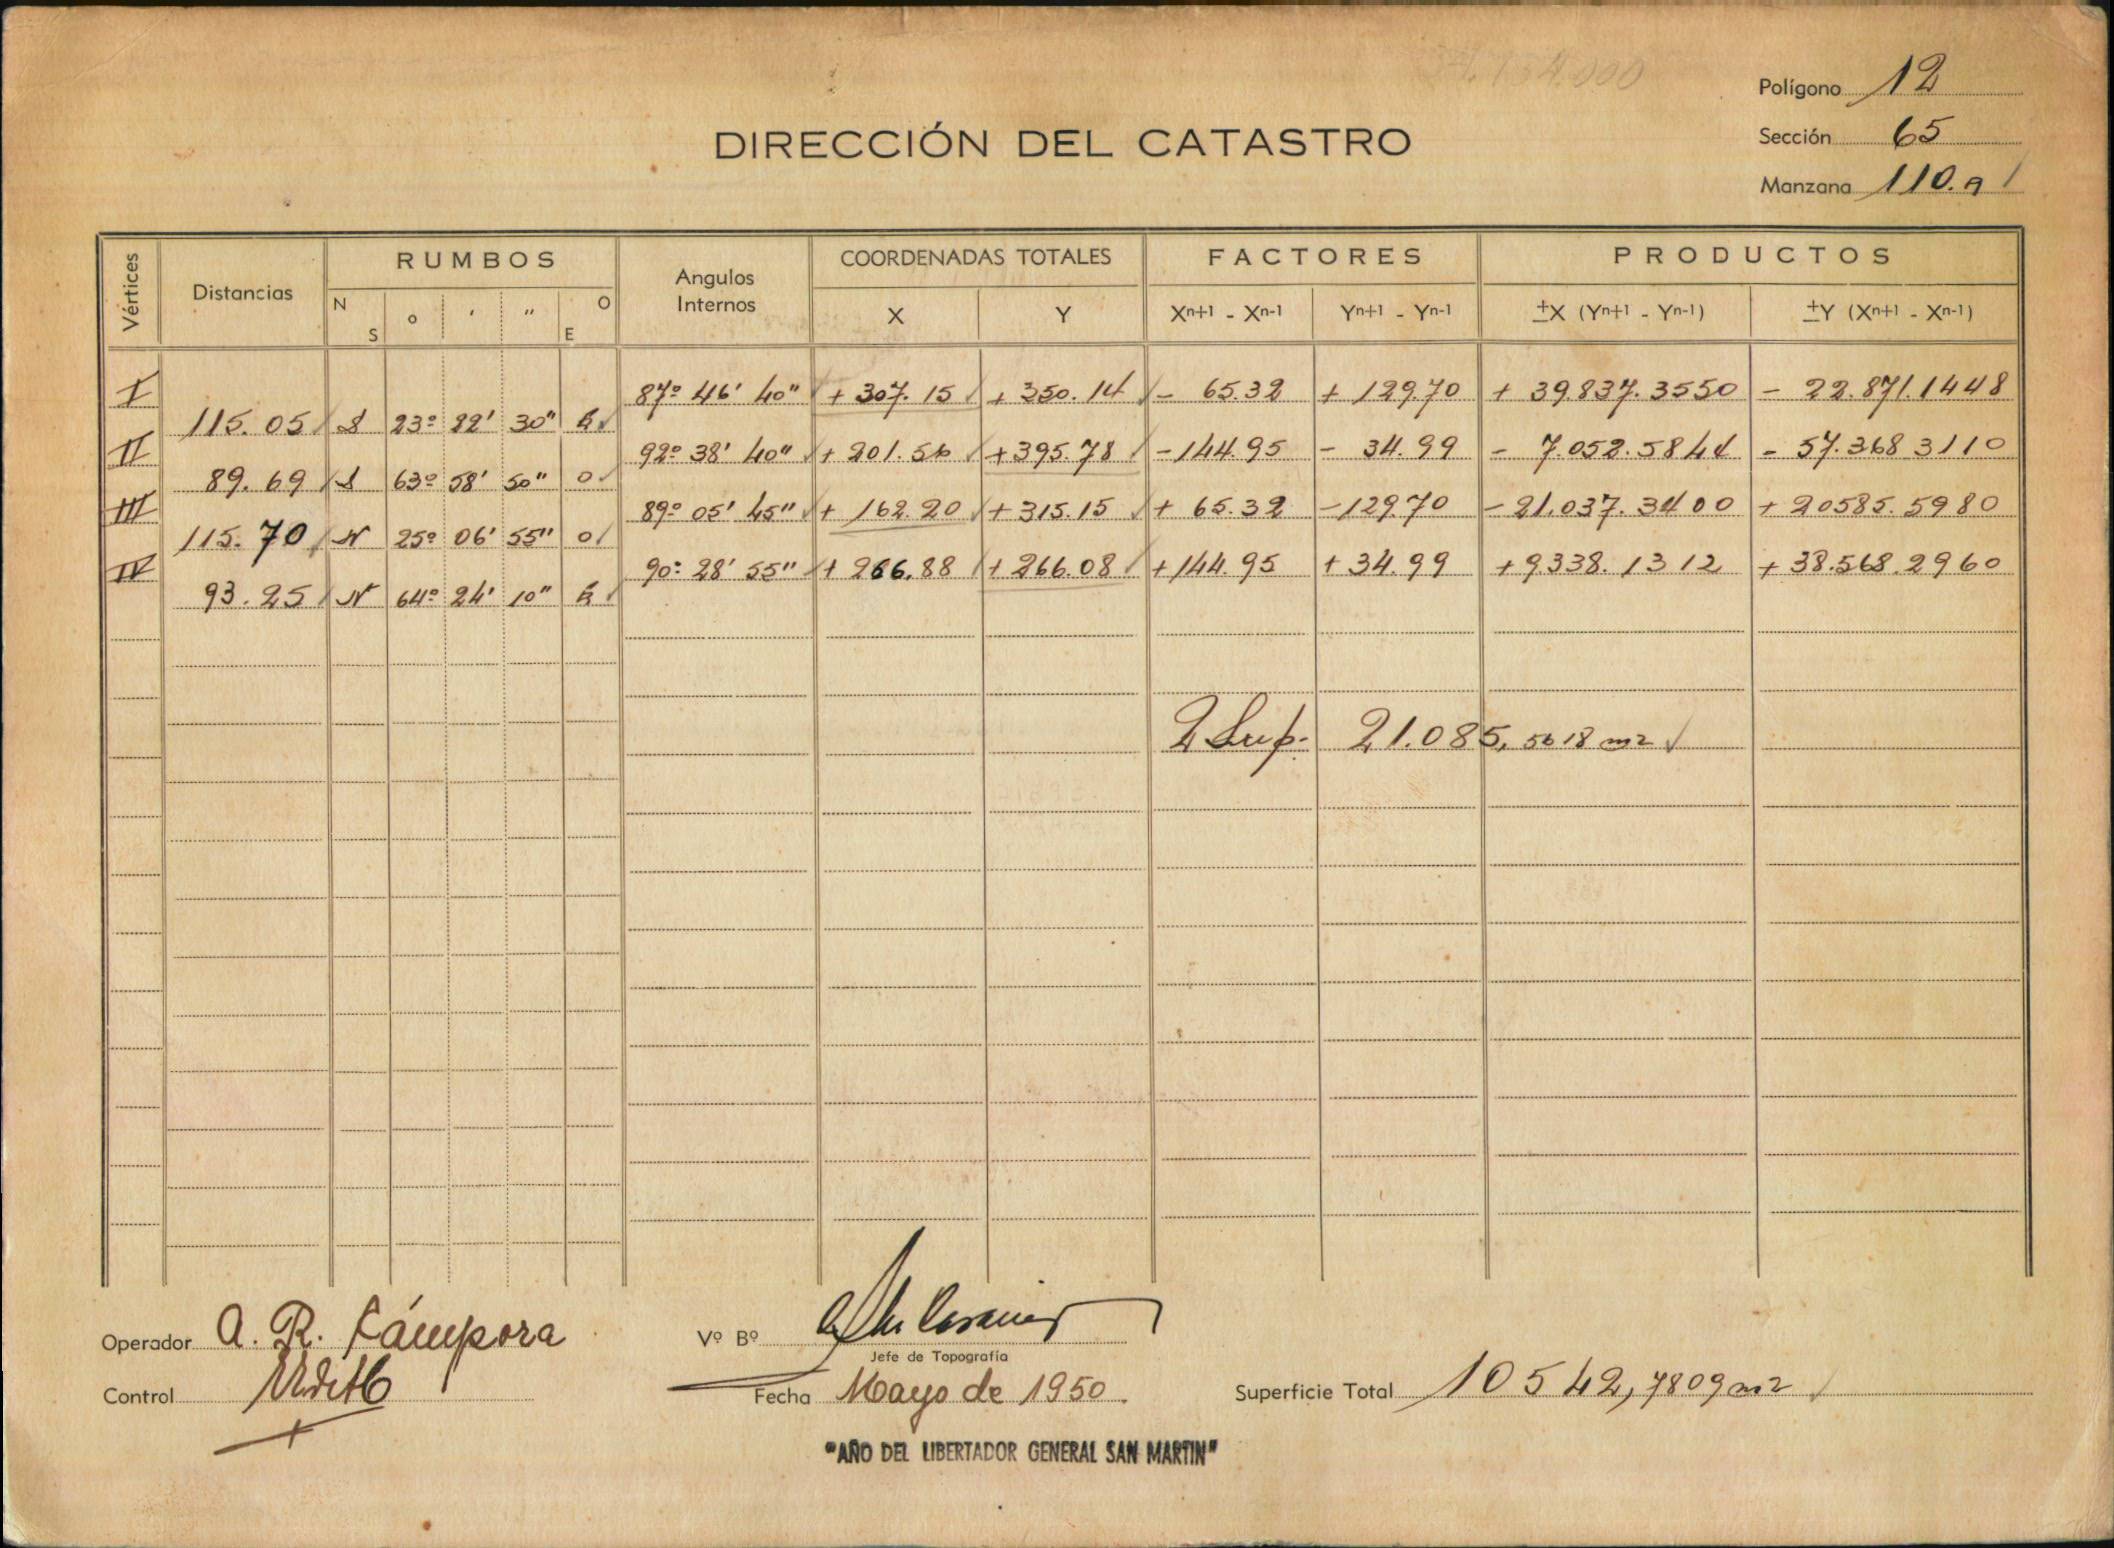 DIRECCIÓN DEL CATASTRO
Polígono 12
Sección 65
Manzana 110.a
Vértices Distancias RUMBOS Angulos Internos COORDENADAS TOTALES FACTORES PRODUCTOS
N S o ' " O E X Y Xn+1 - Xn-1 Yn+1 - Yn-1 ±X (Yn+1 - Yn-1) ±Y (Xn+1 - Xn-1)
I 87º 46' 40" + 307.15 + 350.14 - 65.32 + 129.70 + 39.837.3550 - 22.871.1448
115.05 S 23º 22' 30" E
II 92º 38' 40" + 201.56 + 395.78 - 144.95 - 34.99 - 7.052.5844 - 57.368 3110
89.69 S 63º 58' 50" O
III 89º 05' 45" + 162.20 + 315.15 + 65.32 - 129.70 - 21.037.3400 + 20585.5980
115.70 N 25º 06' 55" O
IV 90º 28' 55" + 266.88 + 266.08 + 144.95 + 34.99 + 9.338.1312 + 38.568.2960
93.25 N 64º 24' 10" E
2 Sup. 21.085,5618 m2
Operador A. R. Cámpora
Vº Bº
Jefe de Topografía
Control
Fecha Mayo de 1950.
Superficie Total 10542,7809 m2
"AÑO DEL LIBERTADOR GENERAL SAN MARTIN"